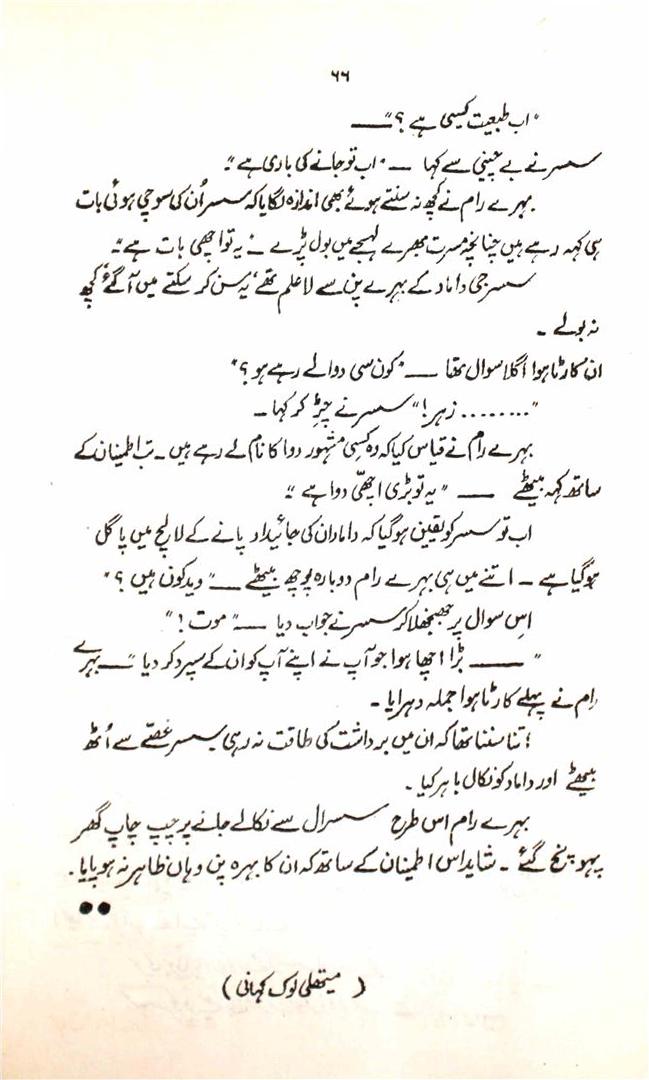 ۶۶
"اب طبیعت کیسی ہے؟" ——
سسر نے بے چینی سے کہا — "اب تو جانے کی باری ہے"۔
بہرے رام نے کچھ نہ سنتے ہوئے بھی اندازہ لگایا کہ سسر اُن کی سوچی ہوئی بات
ہی کہہ رہے ہیں چنانچہ مسرت بھرے لہجے میں بول پڑے ۔ "یہ تو اچھی بات ہے"۔
سسر جی داماد کے بہرے پن سے لاعلم تھے، یہ سن کر سکتے میں آگئے، کچھ
نہ بولے ۔
ان کا رٹا ہوا اگلا سوال تھا — "کون سی دوا لے رہے ہو؟"
"........ زہر!" سسر نے چڑ کر کہا ۔
بہرے رام نے قیاس کیا کہ وہ کسی مشہور دوا کا نام لے رہے ہیں ۔ تب اطمینان کے
ساتھ کہہ بیٹھے —— "یہ تو بڑی اچھی دوا ہے"۔
اب تو سسر کو یقین ہو گیا کہ داماد ان کی جائیداد پانے کے لالچ میں پاگل
ہو گیا ہے ۔ اتنے میں ہی بہرے رام دوبارہ پوچھ بیٹھے — "وید کون ہیں؟"
اس سوال پر جھنجھلا کر سسر نے جواب دیا — "موت!"
"—— بڑا اچھا ہوا جو آپ نے اپنے آپ کو ان کے سپرد کر دیا" — بہرے
رام نے پہلے کا رٹا ہوا جملہ دہرایا ۔
اتنا سننا تھا کہ ان میں برداشت کی طاقت نہ رہی سسر غصّے سے اُٹھ
بیٹھے اور داماد کو نکال باہر کیا ۔
بہرے رام اس طرح سسرال سے نکالے جانے پر چپ چاپ گھر
پہونچ گئے ۔ شاید اس اطمینان کے ساتھ کہ ان کا بہرہ پن وہاں ظاہر نہ ہو پایا ۔
●●
( میتھلی لوک کہانی )